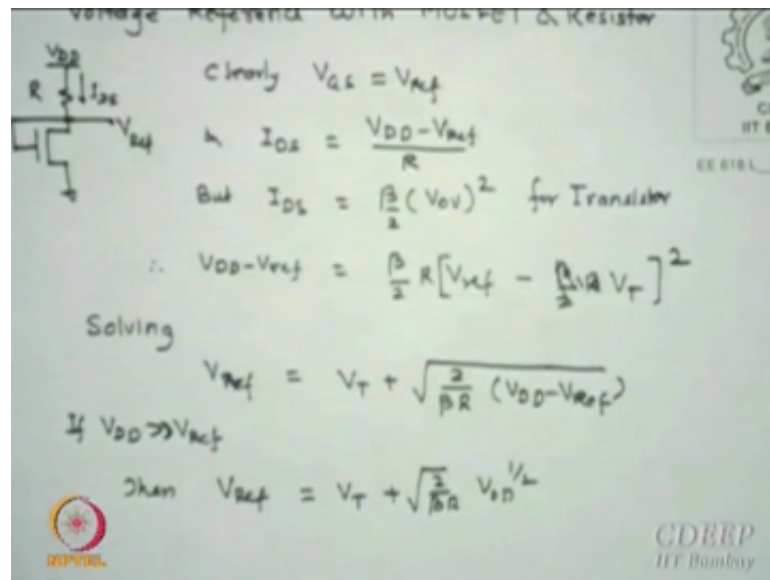 Voltage Reference with MOSFET & Resistor
VDD
R IDS
VRef
Clearly VGS = VRef
& IDS = VDD-VRef
R
But IDS = β/2 (VOV)² for Transistor
∴ VDD-Vref = β/2 R[Vref - VT]²
Solving
VRef = VT + √(2/βR (VDD-VRef))
If VDD >> VRef
Then VRef = VT + √(2/βR) VDD^1/2
EE 618 L
NPTEL
CDEEP
IIT Bombay